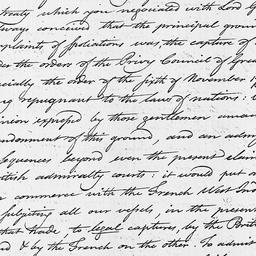 treaty which you negotiated with Lord G
always conceived that the principal groun
plaints of spoliations was, the capture of
der the orders of the Privy Council of Grea
ecially the order of the sixth of November 1
ng repugnant to the laws of nations:
inion expressed by those gentlemen
andonment of this ground and an adm
sequences beyond even the present claim
itish admiralty courts: it would put a
commerce with the French West In
subjecting all our vessels, in the present
that trade, to legal captures, by the Brit
d & by the French on the other. To admit